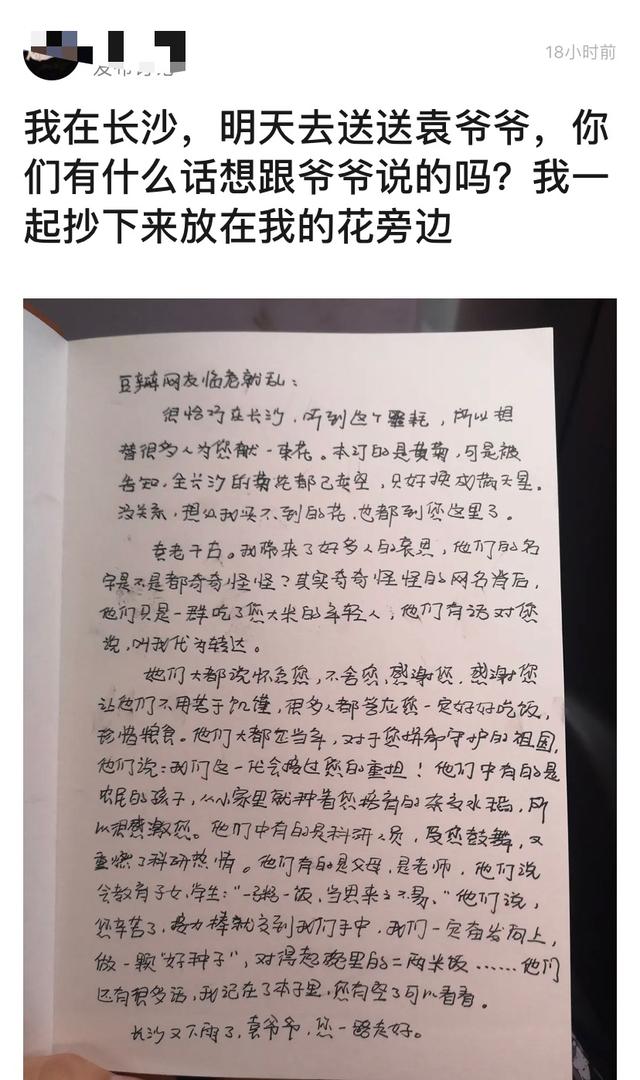 18小时前
我在长沙，明天去送送袁爷爷，你
们有什么话想跟爷爷说的吗？我一
起抄下来放在我的花旁边
豆瓣网友临老就乱：
很恰巧在长沙，听到这个噩耗，所以想
替很多人为您献一束花。本订的是黄菊，可是被
告知，全长沙的菊花都已卖空，只好换成满天星。
没关系，想必我买不到的花，也都到您这里了。
袁老千古。我带来了好多人的哀思，他们的名
字是不是都奇奇怪怪？其实奇奇怪怪的网名背后，
他们只是一群吃了您大米的年轻人，他们有话对您
说，叫我代为转达。
她们大都说怀念您，不舍您，感谢您，感谢您
让他们不用苦于饥馑，很多人都答应您一定好好吃饭，
珍惜粮食。他们大都正当年，对于您拼命守护的祖国，
他们说：我们这一代会接过您的重担！他们中有的是
农民的孩子，从小家里就种着您培育的杂交水稻，所
以很感激您。他们中有的是科研人员，受您鼓舞，又
重燃了科研热情。他们有的是父母，是老师，他们说
会教育子女，学生：“一粥一饭，当思来之不易。”他们说，
您辛苦了，接力棒就交到我们手中，我们一定奋发向上，
做一颗“好种子”，对得起碗里的二两米饭……他们
还有很多话，我记在了本子里，您有空了可以看看。
长沙又下雨了，袁爷爷，您一路走好。